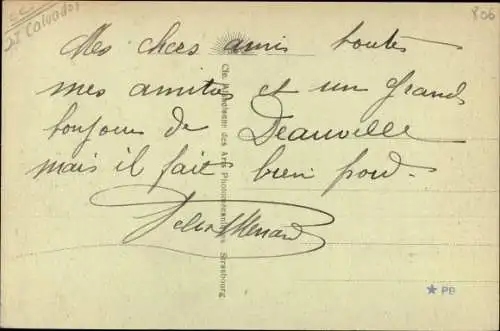 Calvados
806
Mes chers amis toutes
mes amitiés et un grand
bonjour de Deauville
mais il fait bien froid.
Cie. Alsacienne des Arts Photomécaniques Strasbourg
PB